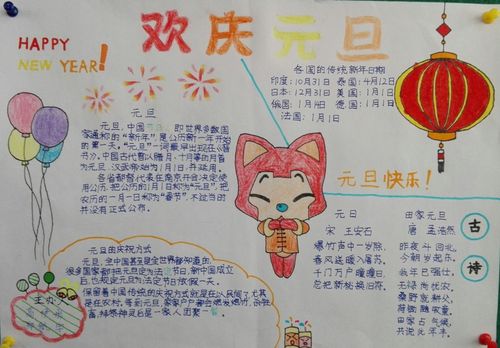 欢庆元旦
HAPPY
NEW YEAR!
各国的传统新年日期
印度:10月31日 泰国:4月12日
日本:12月31日 美国:1月1日
俄国:1月14日 德国:1月1日
法国:1月1日
元旦
元旦,中国节日,即世界多数国
家通称的“新年”,是公历新一年开始
的第一天。“元旦”一词最早出现在《晋
书》。中国古代曾以腊月、十月等的月首
为元旦,汉武帝始为1月1日,并延用。
各省都督代表在南京开会决定使
用公历,把公历的1月1日称为“元旦”,把
农历的一月一日称为“春节”,不过当时
并没有正式公布。
元旦快乐!
元日
宋 王安石
爆竹声中一岁除,
春风送暖入屠苏。
千门万户曈曈日,
总把新桃换旧符。
田家元旦
唐 孟浩然
昨夜斗回北,
今朝岁起东。
我年已强仕,
无禄尚忧农。
桑野就耕父,
荷锄随牧童。
田家占气候,
共说此年丰。
古诗
元旦的庆祝方式
元旦,全中国甚至是全世界都知道的
很多国家都把元旦定为法定节日,新中国成立
后,也规定元旦为法定节日放假一天。
保留着中国传统的庆祝方式就是在人民间了,尤其
是在农村,每到元旦,家家户户都会燃放爆竹,杀鸡
宰鹅,拜祭神灵后是一家人团聚一餐。
主办